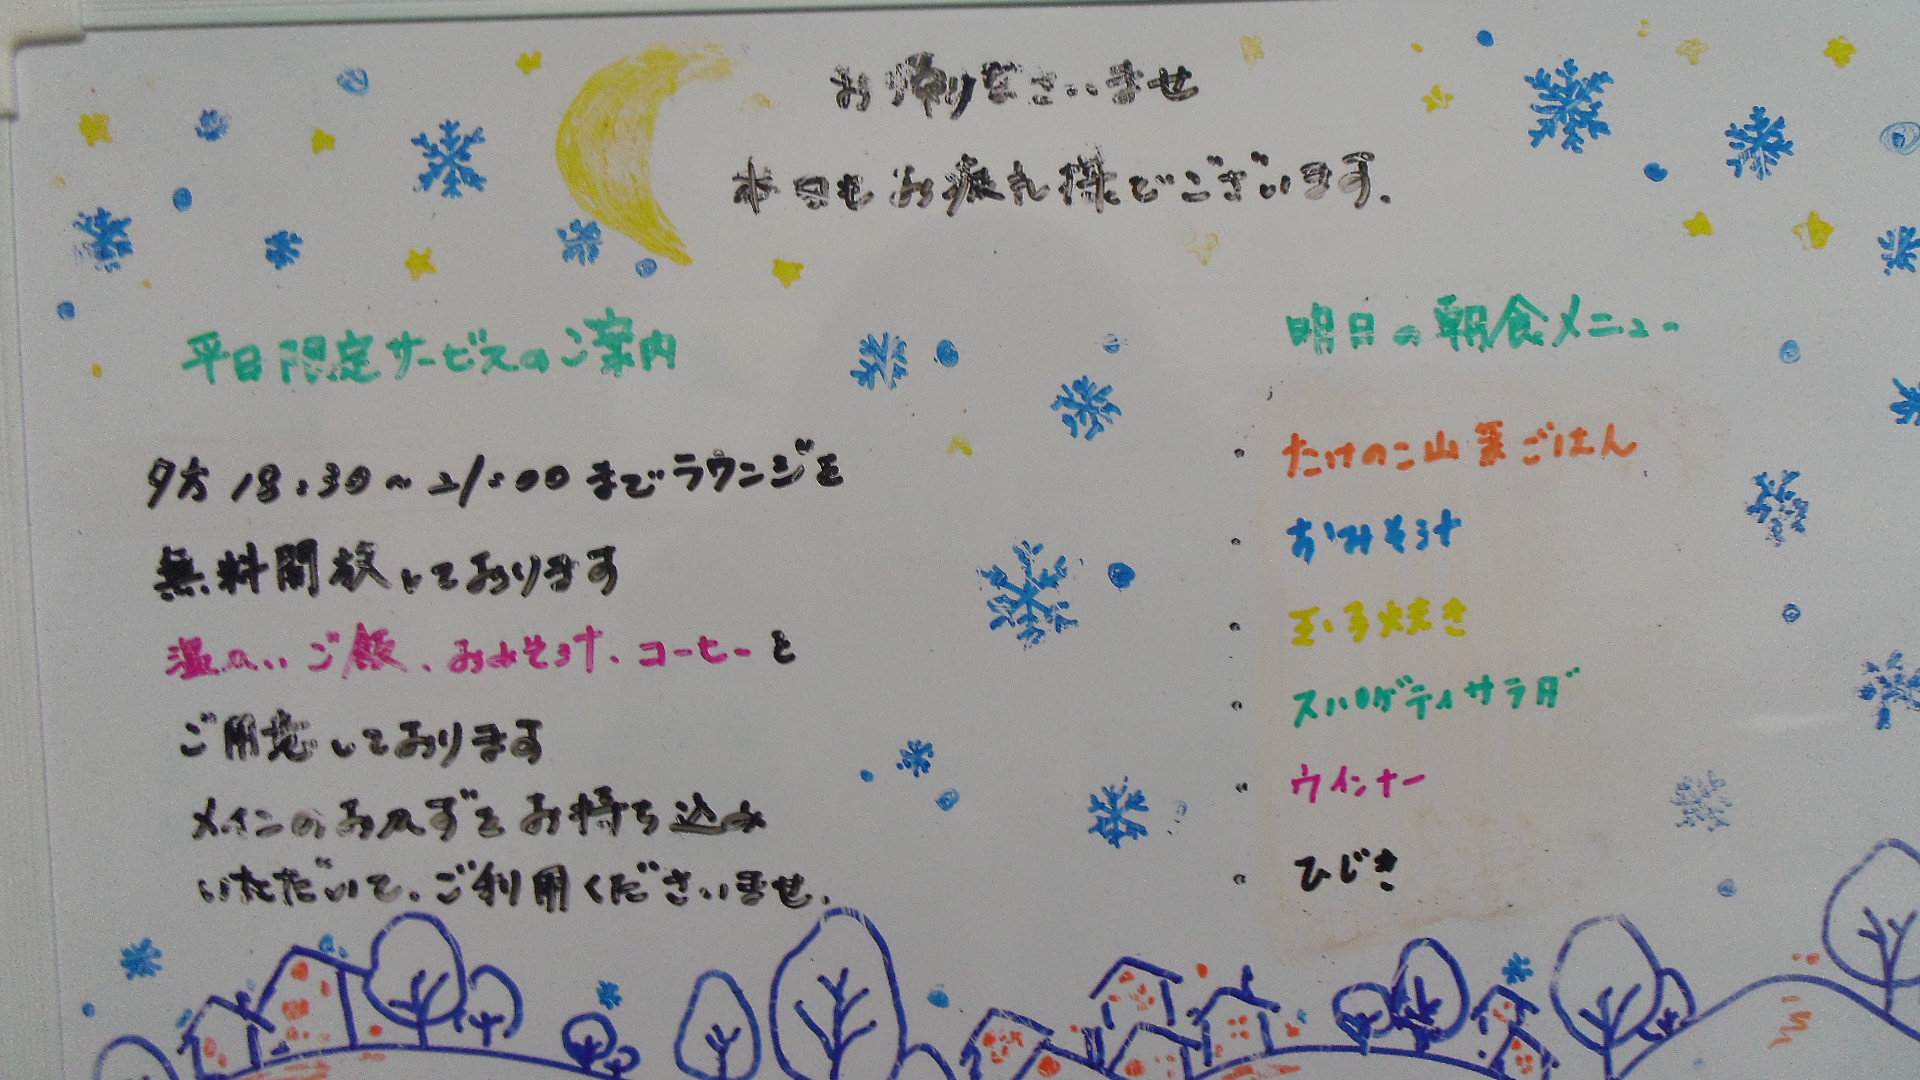 お帰りなさいませ
本日もお疲れ様でございます.
平日限定サービスのご案内
夕方 18:30〜21:00 までラウンジを
無料開放しております
温かいご飯、おみそ汁、コーヒーを
ご用意しております
メインのおかずをお持ち込み
いただいて、ご利用くださいませ.
明日の朝食メニュー
・たけのこ山菜ごはん
・おみそ汁
・玉子焼き
・スパゲティサラダ
・ウインナー
・ひじき